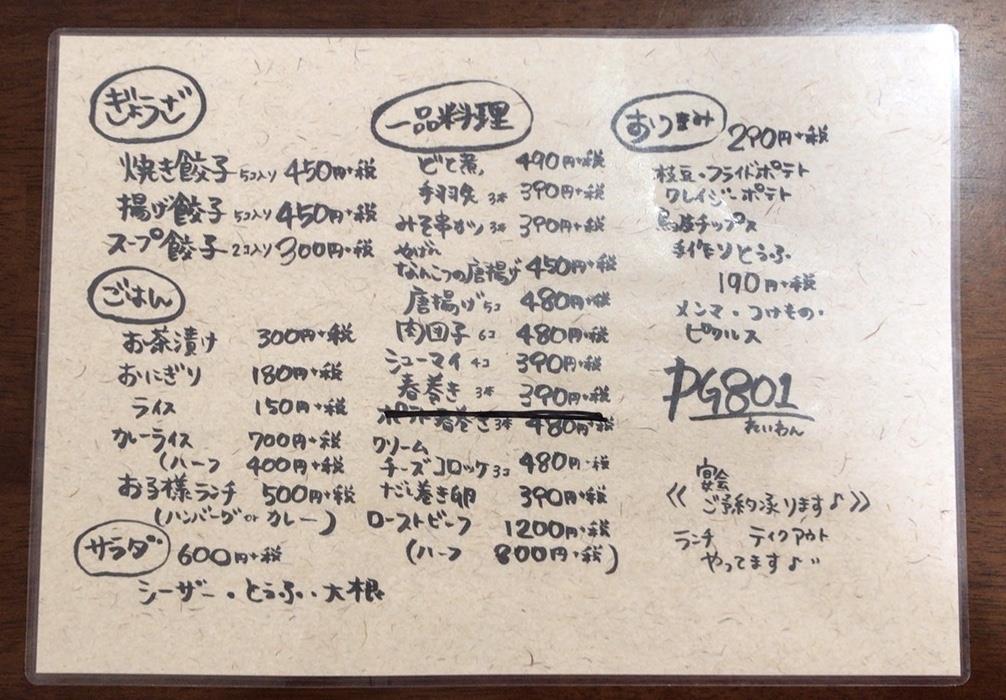 ぎょうざ
焼き餃子 5コ入り 450円+税
揚げ餃子 5コ入り 450円+税
スープ餃子 2コ入り 300円+税
ごはん
お茶漬け 300円+税
おにぎり 180円+税
ライス 150円+税
カレーライス 700円+税
(ハーフ 400円+税
お子様ランチ 500円+税
(ハンバーグ or カレー)
サラダ 600円+税
シーザー・とうふ・大根
一品料理
どて煮 490円+税
手羽先 3本 390円+税
みそ串カツ 3本 390円+税
やげん
なんこつの唐揚げ 450円+税
唐揚げ 5コ 480円+税
肉団子 6コ 480円+税
シューマイ 4コ 390円+税
春巻き 3本 390円+税
ポテト春巻き 3本 480円+税
クリーム
チーズコロッケ 3コ 480円+税
だし巻き卵 390円+税
ローストビーフ 1200円+税
(ハーフ 800円+税)
おつまみ 290円+税
枝豆・フライドポテト
クレイジーポテト
鳥皮チップス
手作りとうふ
190円+税
メンマ・つけもの・
ピクルス
PG801
たいわん
宴会
《ご予約承ります♪》
ランチ テイクアウト
やってます♪